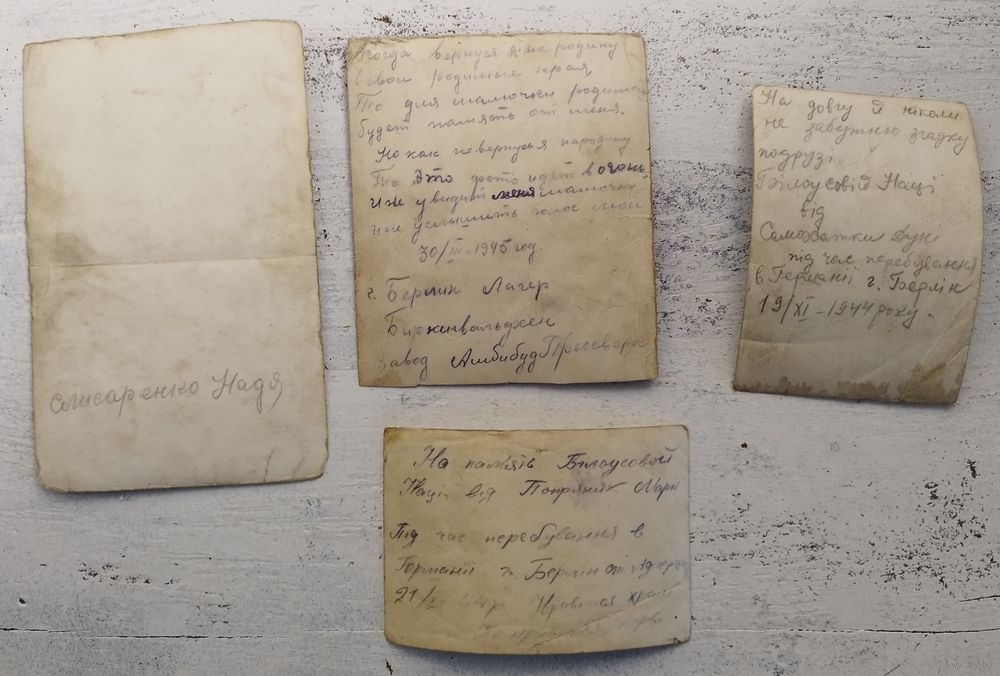 Слисаренко Надя
Когда вернуся я на родину
в свои родимые края,
То для мамочки родимой
будет память от меня.
Но как невернусья народину
То Это фото идет в огонь
И не увидит меня мамочка
И не услышить голос мой
30/III-1945 год.
г. Берлин Лагер
Биркенвальдхен
Завод Амбибуд Прессверк
На довгу й ніколи
не забутню згадку
подрузі
Білоусовій Наці
від
Саможатки Дуні
під час перебування
в Германії г. Берлін
19/XI-1944 року.
На память Білоусовой
Наці від Марії
Під час перебування в
Германії г. Берлін от
21/ 44 р. Нравится